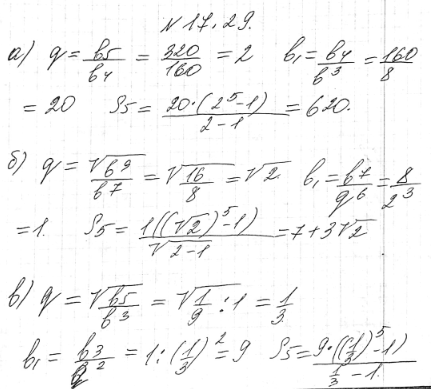 №17.29.
а) q = b5/b4 = 320/160 = 2 b1 = b4/b^3 = 160/8
= 20 S5 = 20·(2^5-1)/(2-1) = 620.
б) q = √(b9/b7) = √(16/8) = √2 b1 = b7/q^6 = 8/2^3
= 1. S5 = 1((√2)^5-1)/√(2-1) = 7+3√2
в) q = √(b5/b3) = √(1/9 : 1) = 1/3
b1 = b3/q^2 = 1:(1/3)^2 = 9 S5 = 9·((1/3)^5-1)/(1/3-1.)